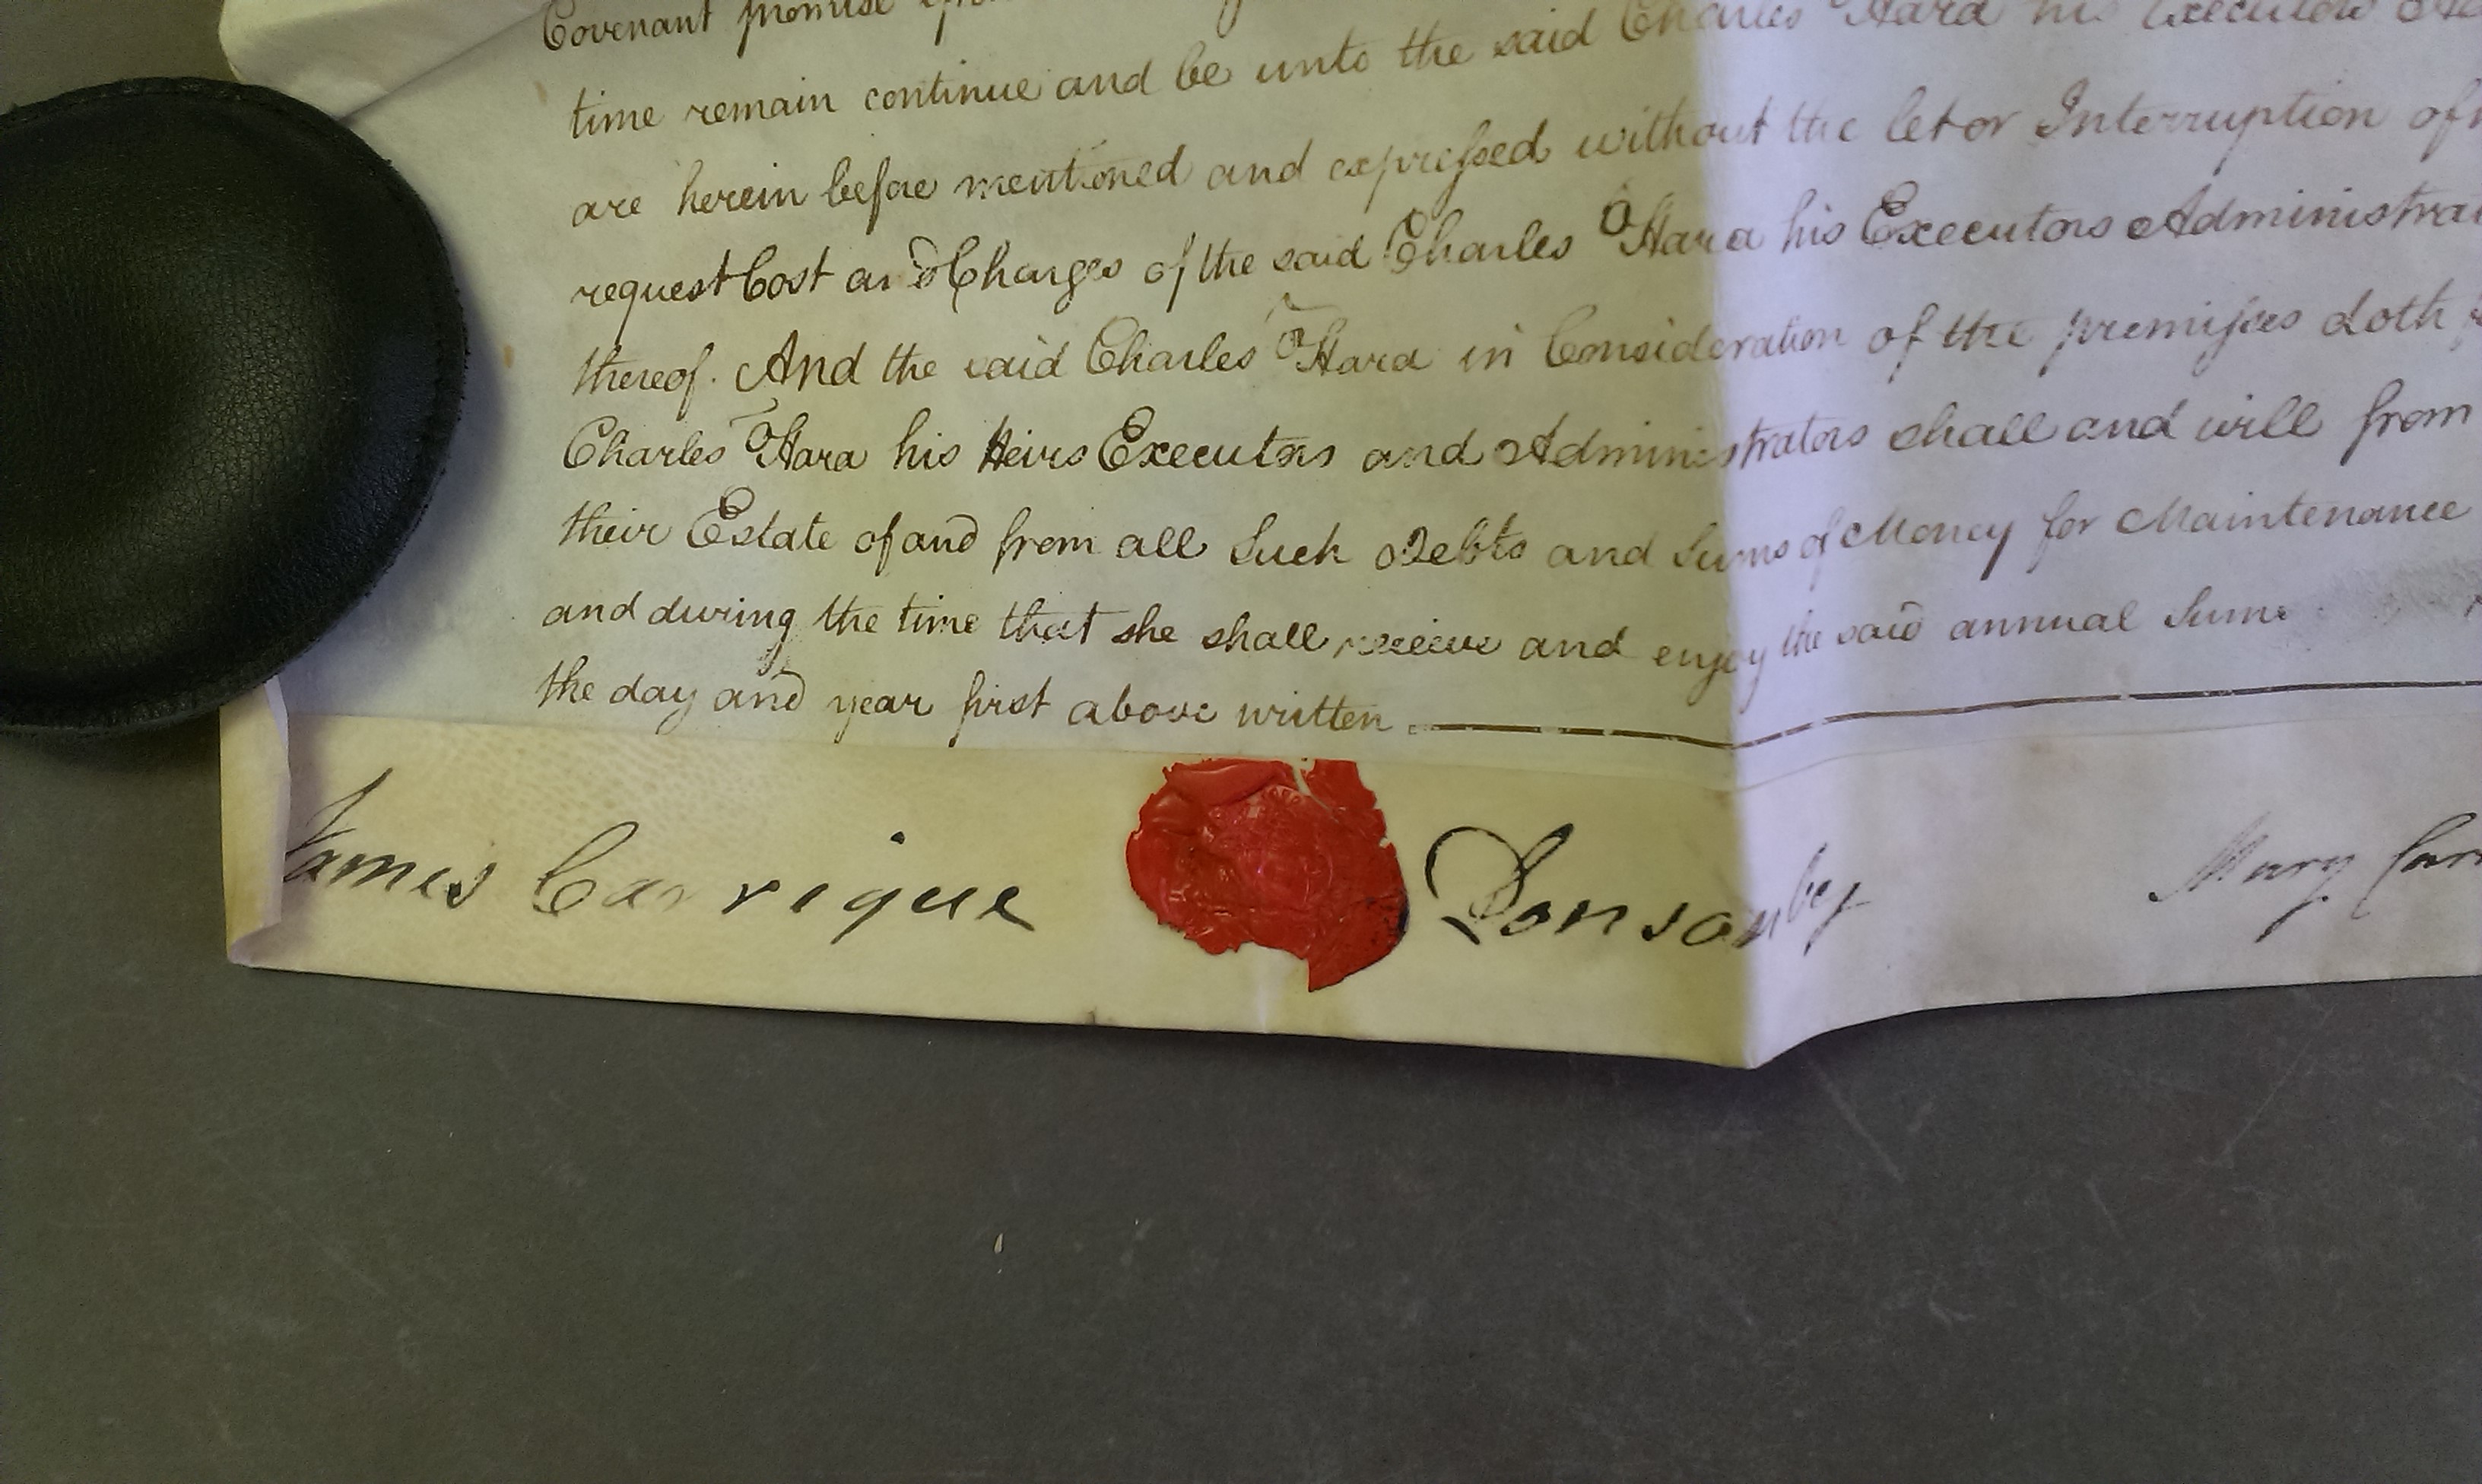 Covenant promise
time remain continue and be unto the said Charles OHara his Executors
are herein before mentioned and expressed without the let or Interruption of
request Cost and Charges of the said Charles OHara his Executors Administrat
thereof. And the said Charles OHara in Consideration of the premisses doth
Charles OHara his Heirs Executors and Administrators shall and will from
their Estate of and from all Such Debts and Sums of Money for Maintenance
and during the time that she shall receive and enjoy the said annual Sume
the day and year first above written
James Carrique Ponsonby Mary Carr